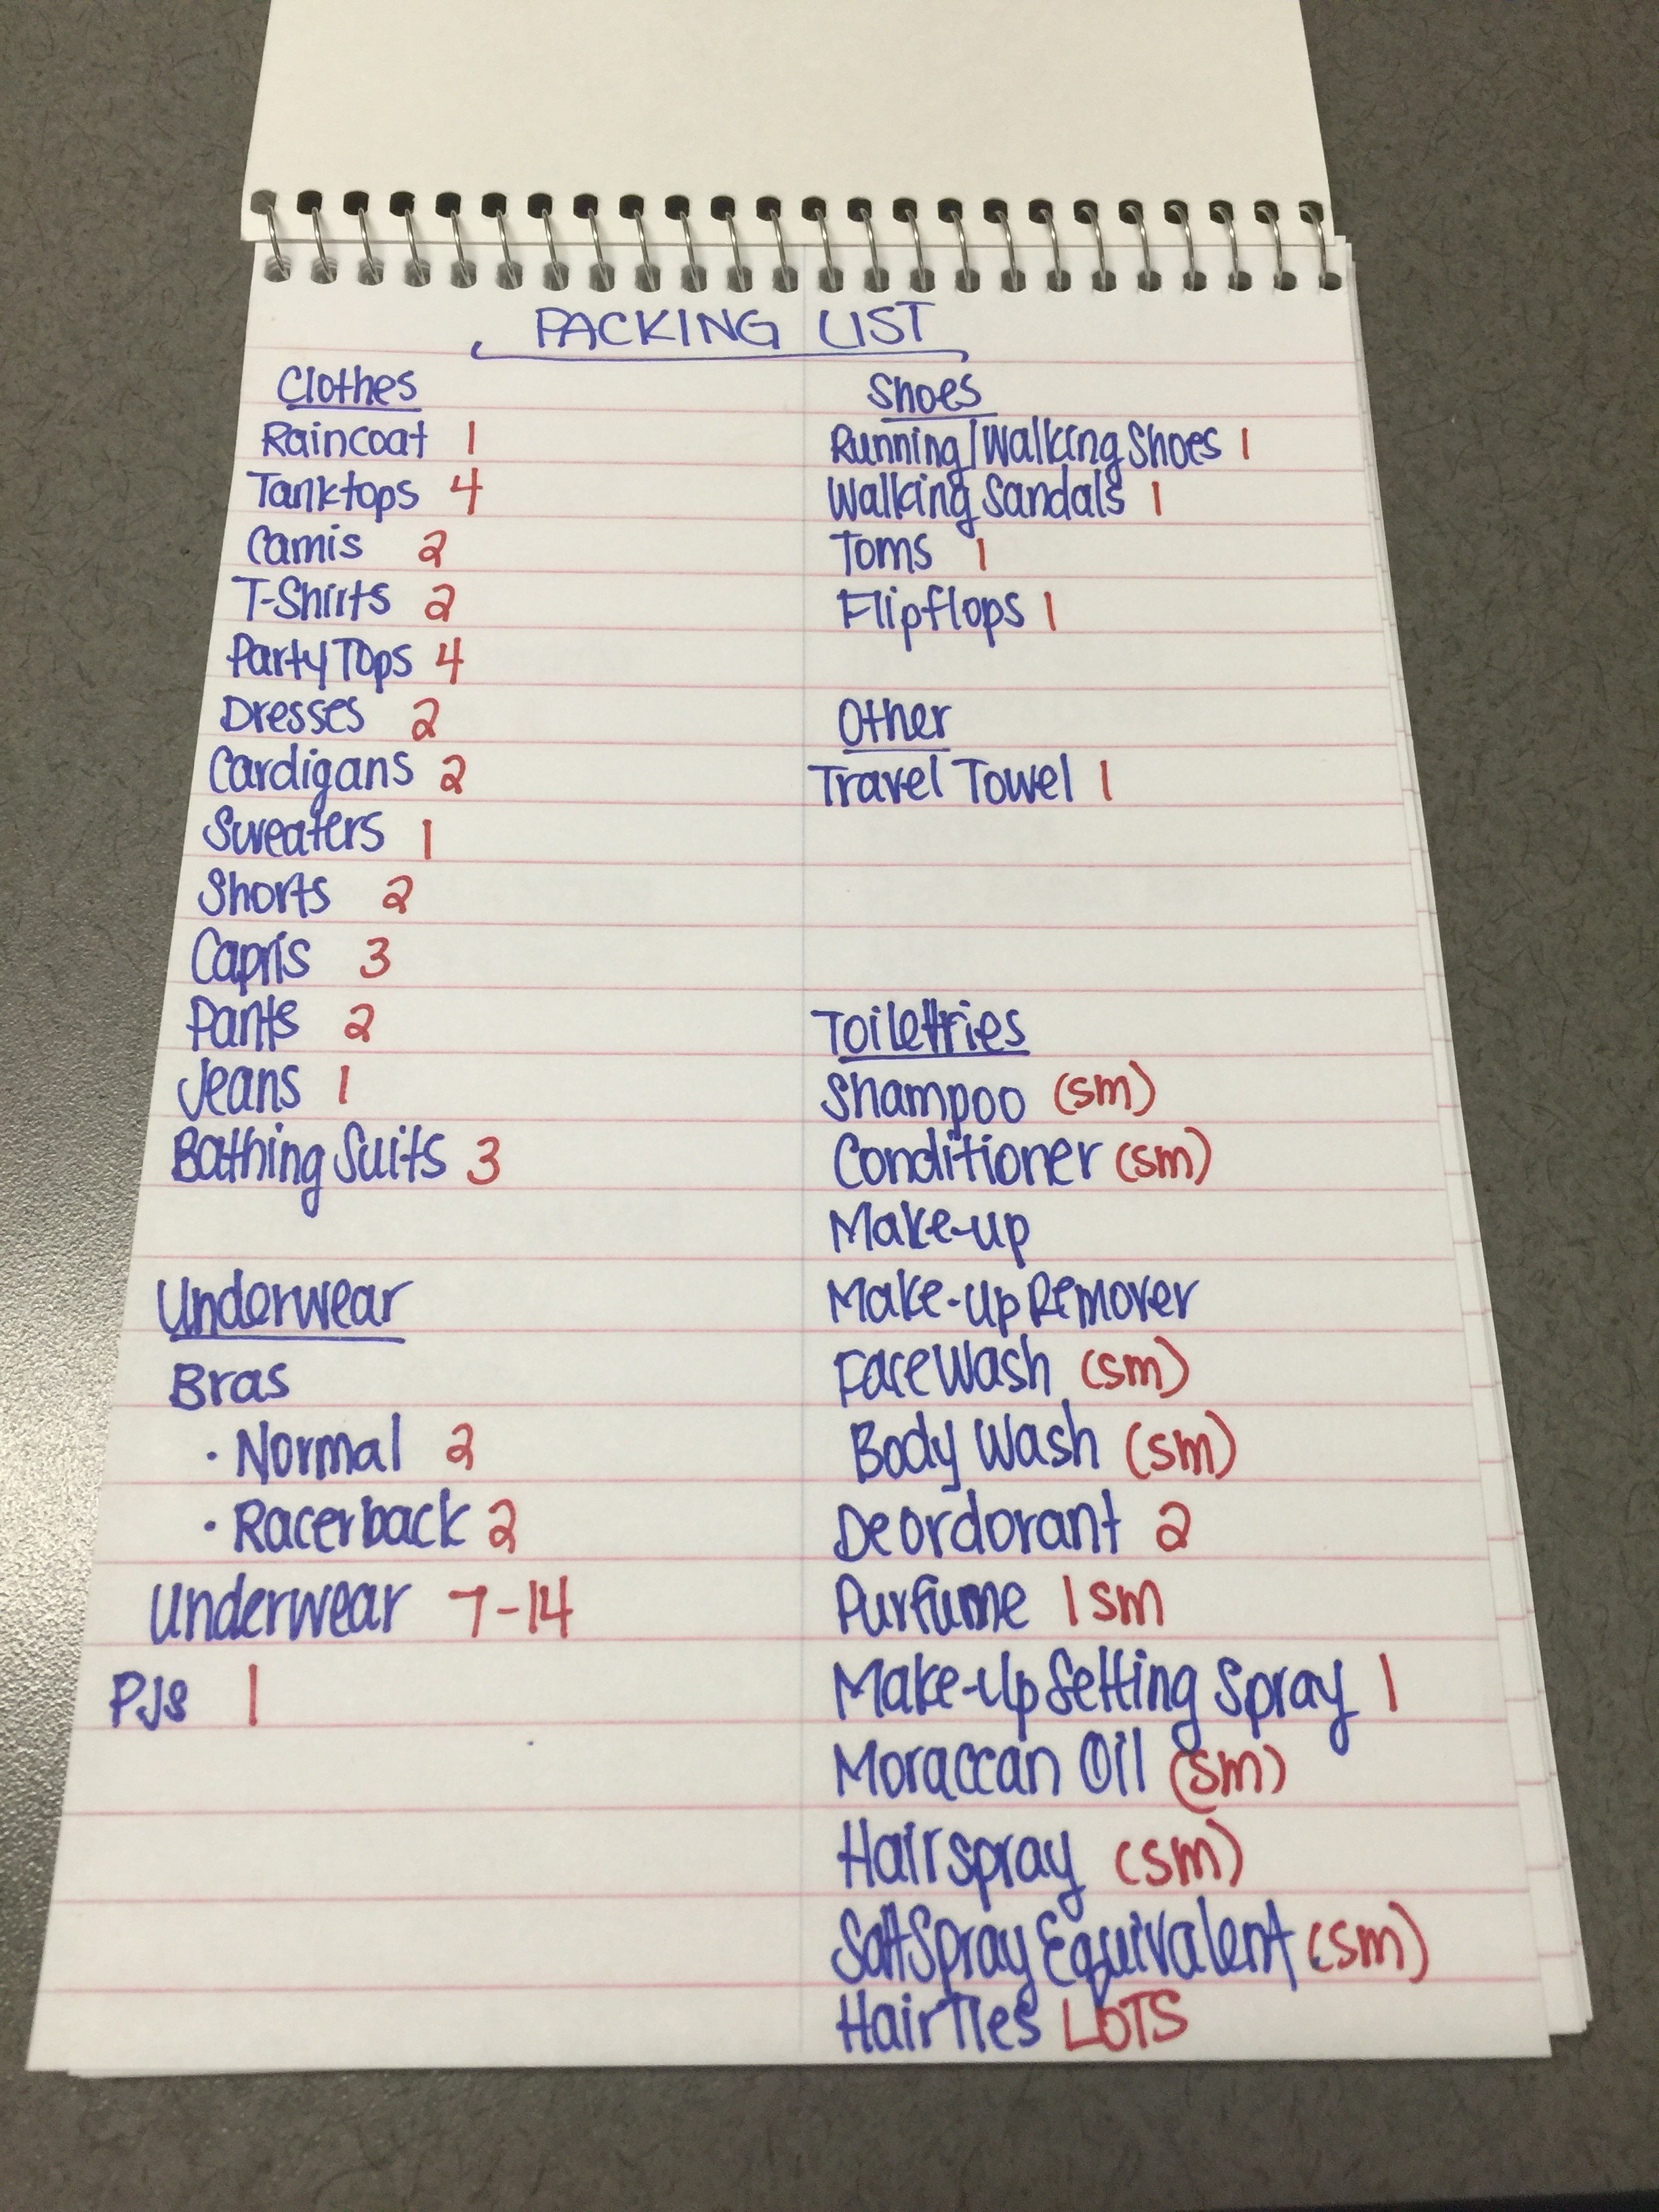 PACKING LIST
Clothes
Raincoat 1
Tanktops 4
Camis 2
T-Shirts 2
Party Tops 4
Dresses 2
Cardigans 2
Sweaters 1
Shorts 2
Capris 3
Pants 2
Jeans 1
Bathing Suits 3
Underwear
Bras
· Normal 2
· Racerback 2
Underwear 7-14
PJs 1
Shoes
Running/Walking Shoes 1
Walking Sandals 1
Toms 1
Flipflops 1
Other
Travel Towel 1
Toilettries
Shampoo (sm)
Conditioner (sm)
Make-up
Make-up Remover
Face Wash (sm)
Body Wash (sm)
Deordorant 2
Purfume 1 sm
Make-Up Setting Spray 1
Moraccan Oil (sm)
Hairspray (sm)
Salt Spray Equivalent (sm)
Hair Ties LOTS